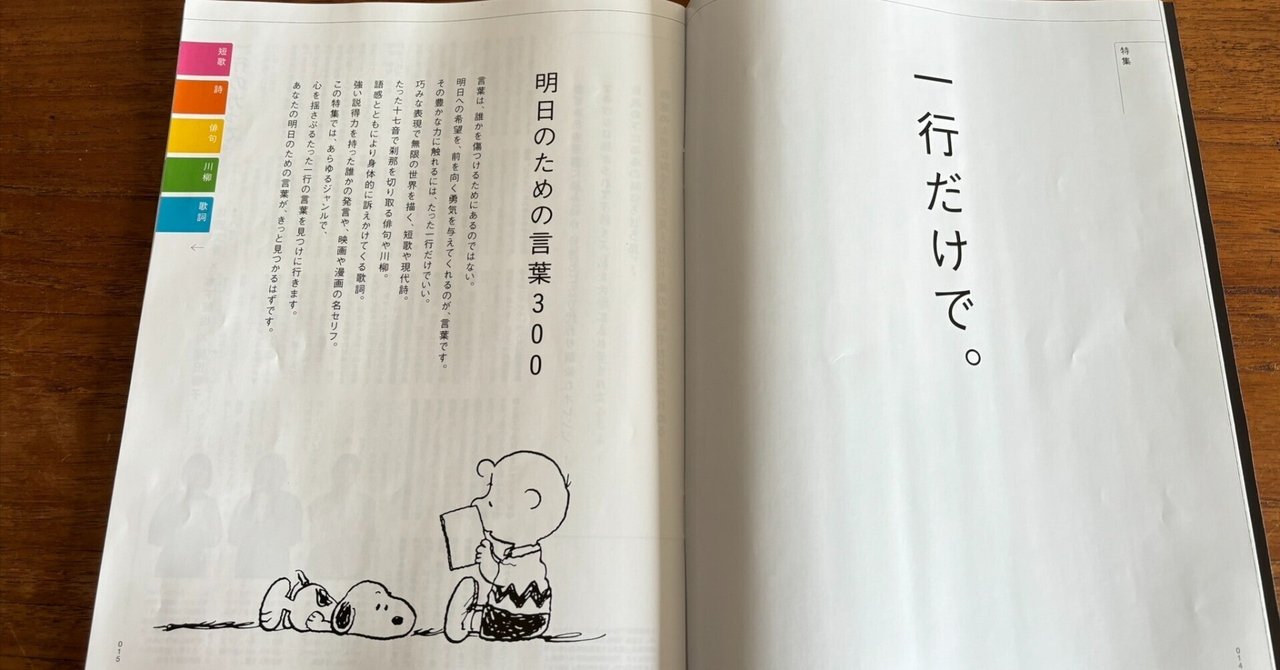 特集
一行だけで。
014
明日のための言葉300
言葉は、誰かを傷つけるためにあるのではない。
明日への希望を、前を向く勇気を与えてくれるのが、言葉です。
その豊かな力に触れるには、たった一行だけでいい。
巧みな表現で無限の世界を描く、短歌や現代詩。
たった十七音で刹那を切り取る俳句や川柳。
語感とともにより身体的に訴えかけてくる歌詞。
強い説得力を持った誰かの発言や、映画や漫画の名セリフ。
この特集では、あらゆるジャンルで、
心を揺さぶるたった一行の言葉を見つけに行きます。
あなたの明日のための言葉が、きっと見つかるはずです。
短歌
詩
俳句
川柳
歌詞
015